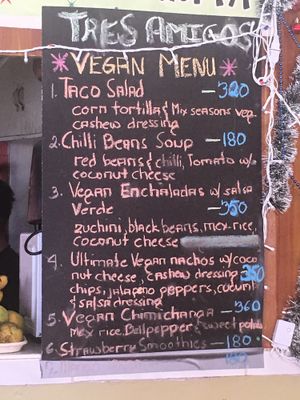 TRES AMIGOS
VEGAN MENU
1. TACO SALAD — 320
CORN TORTILLA & MIX SEASONS VEG.
CASHEW DRESSING
2. CHILLI BEANS SOUP — 180
RED BEANS & CHILLI, TOMATO W/
COCONUT CHEESE
3. VEGAN ENCHALADAS W/ SALSA
VERDE — 350
ZUCHINI, BLACK BEANS, MEX. RICE,
COCONUT CHEESE
4. ULTIMATE VEGAN NACHOS W/ COCO
NUT CHEESE, CASHEW DRESSING 350
CHIPS, JALAPENO PEPPERS, CUCUM
& SALSA DRESSING
5. VEGAN CHIMICHANGA — 360
MEX RICE, BELLPEPPER & SWEET POTATO
6. STRAWBERRY SMOOTHIES — 180
180